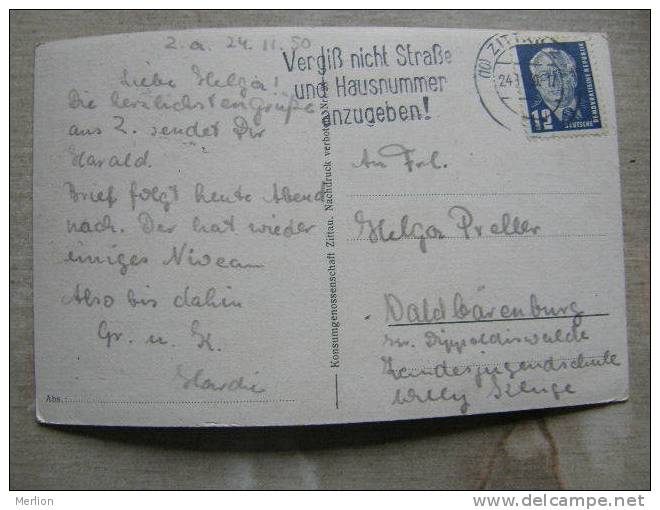 Z. a. 24.11.50
Liebe Helga!
Die herzlichsten Grüße
aus Z. sendet Dir
Harald.
Brief folgt heute Abend
nach. Der hat wieder
einiges Niveau
Also bis dahin
Gr. u. K.
Hardi
Abs.:
Konsumgenossenschaft Zittau. Nachdruck verboten.
Vergiß nicht Straße
und Hausnummer
anzugeben!
(10) ZITTAU
12
DEUTSCHE
DEMOKRATISCHE REPUBLIK
An Frl.
Helga Preller
Waldbärenburg
Dippoldiswalde
Landesjugendschule
Willy